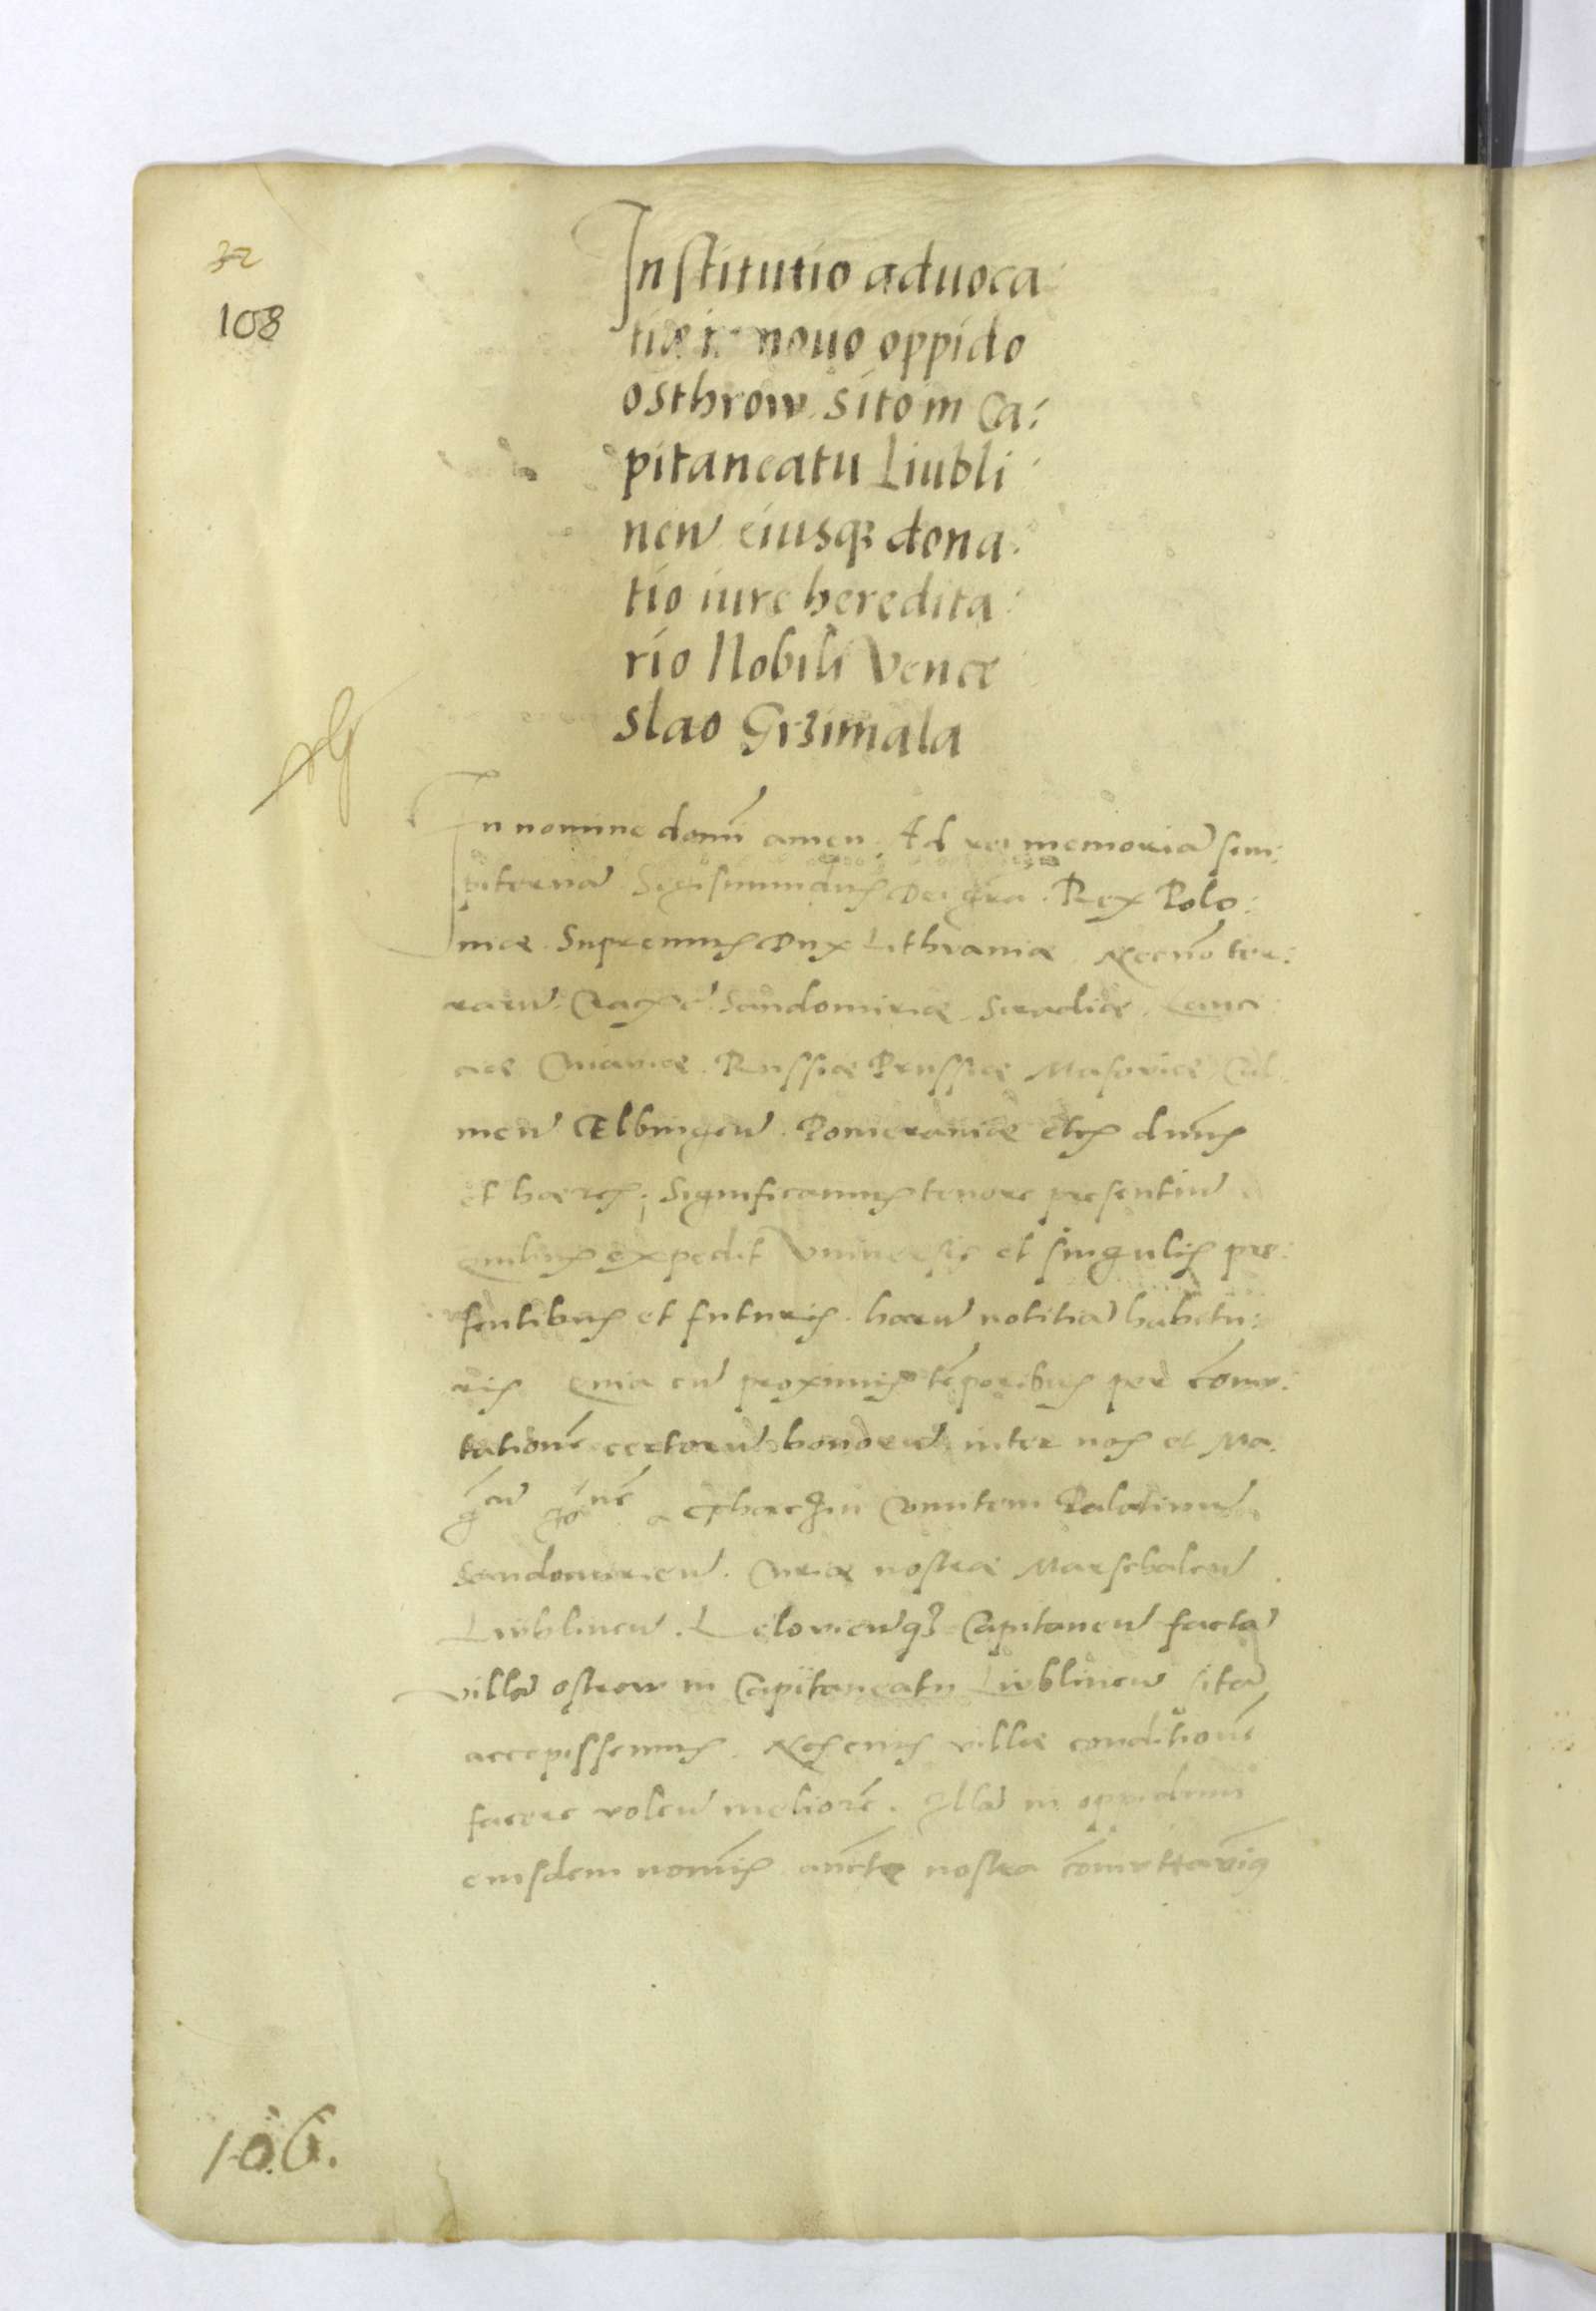 32
108
Institutio aduoca:
tiæ in nouo oppido
osthrow sito in Ca:
pitaneatu Liubli:
nen̄ eiusqꝫ dona:
tio iure heredita:
rio Nobili Vence
slao Grzimala
In nomine domī amen. Ad rei memoriā sem:
piternā Sigismundus Dei gr̄a Rex Polo:
niæ Supremus Dux Lithvaniæ Necnō ter:
rarū Cracoviē Sandomiriæ Siradiæ Lanci
ciæ Cuiaviæ Russiæ Prussiæ Masoviæ Cul
men̄ Elbingen̄ Pomeraniæ etcs dn̄us
et hæres; Significamus tenore presentiū
quibus expedit Vniversis et singulis pre:
sentibus et futuris harū notitiā habitu:
ris Quia cū proximis tēporibus per cōmu:
tationē certorū bonorū inter nos et Ma:
gcū Ioānē a Tharczin Comitem Palatinū
Sandomirien̄ Curiæ nostræ Marschalcū
Liublinen̄ Lelovien̄qꝫ Capitaneū factā
villā ostrow in Capitaneatu Liublinen̄ sitā
accepissemus Nos eius villæ conditionē
facere volen̄ meliorē Illā in oppidum
eiusdem nomīs aūcte nostra cōmuttavimꝰ
106.